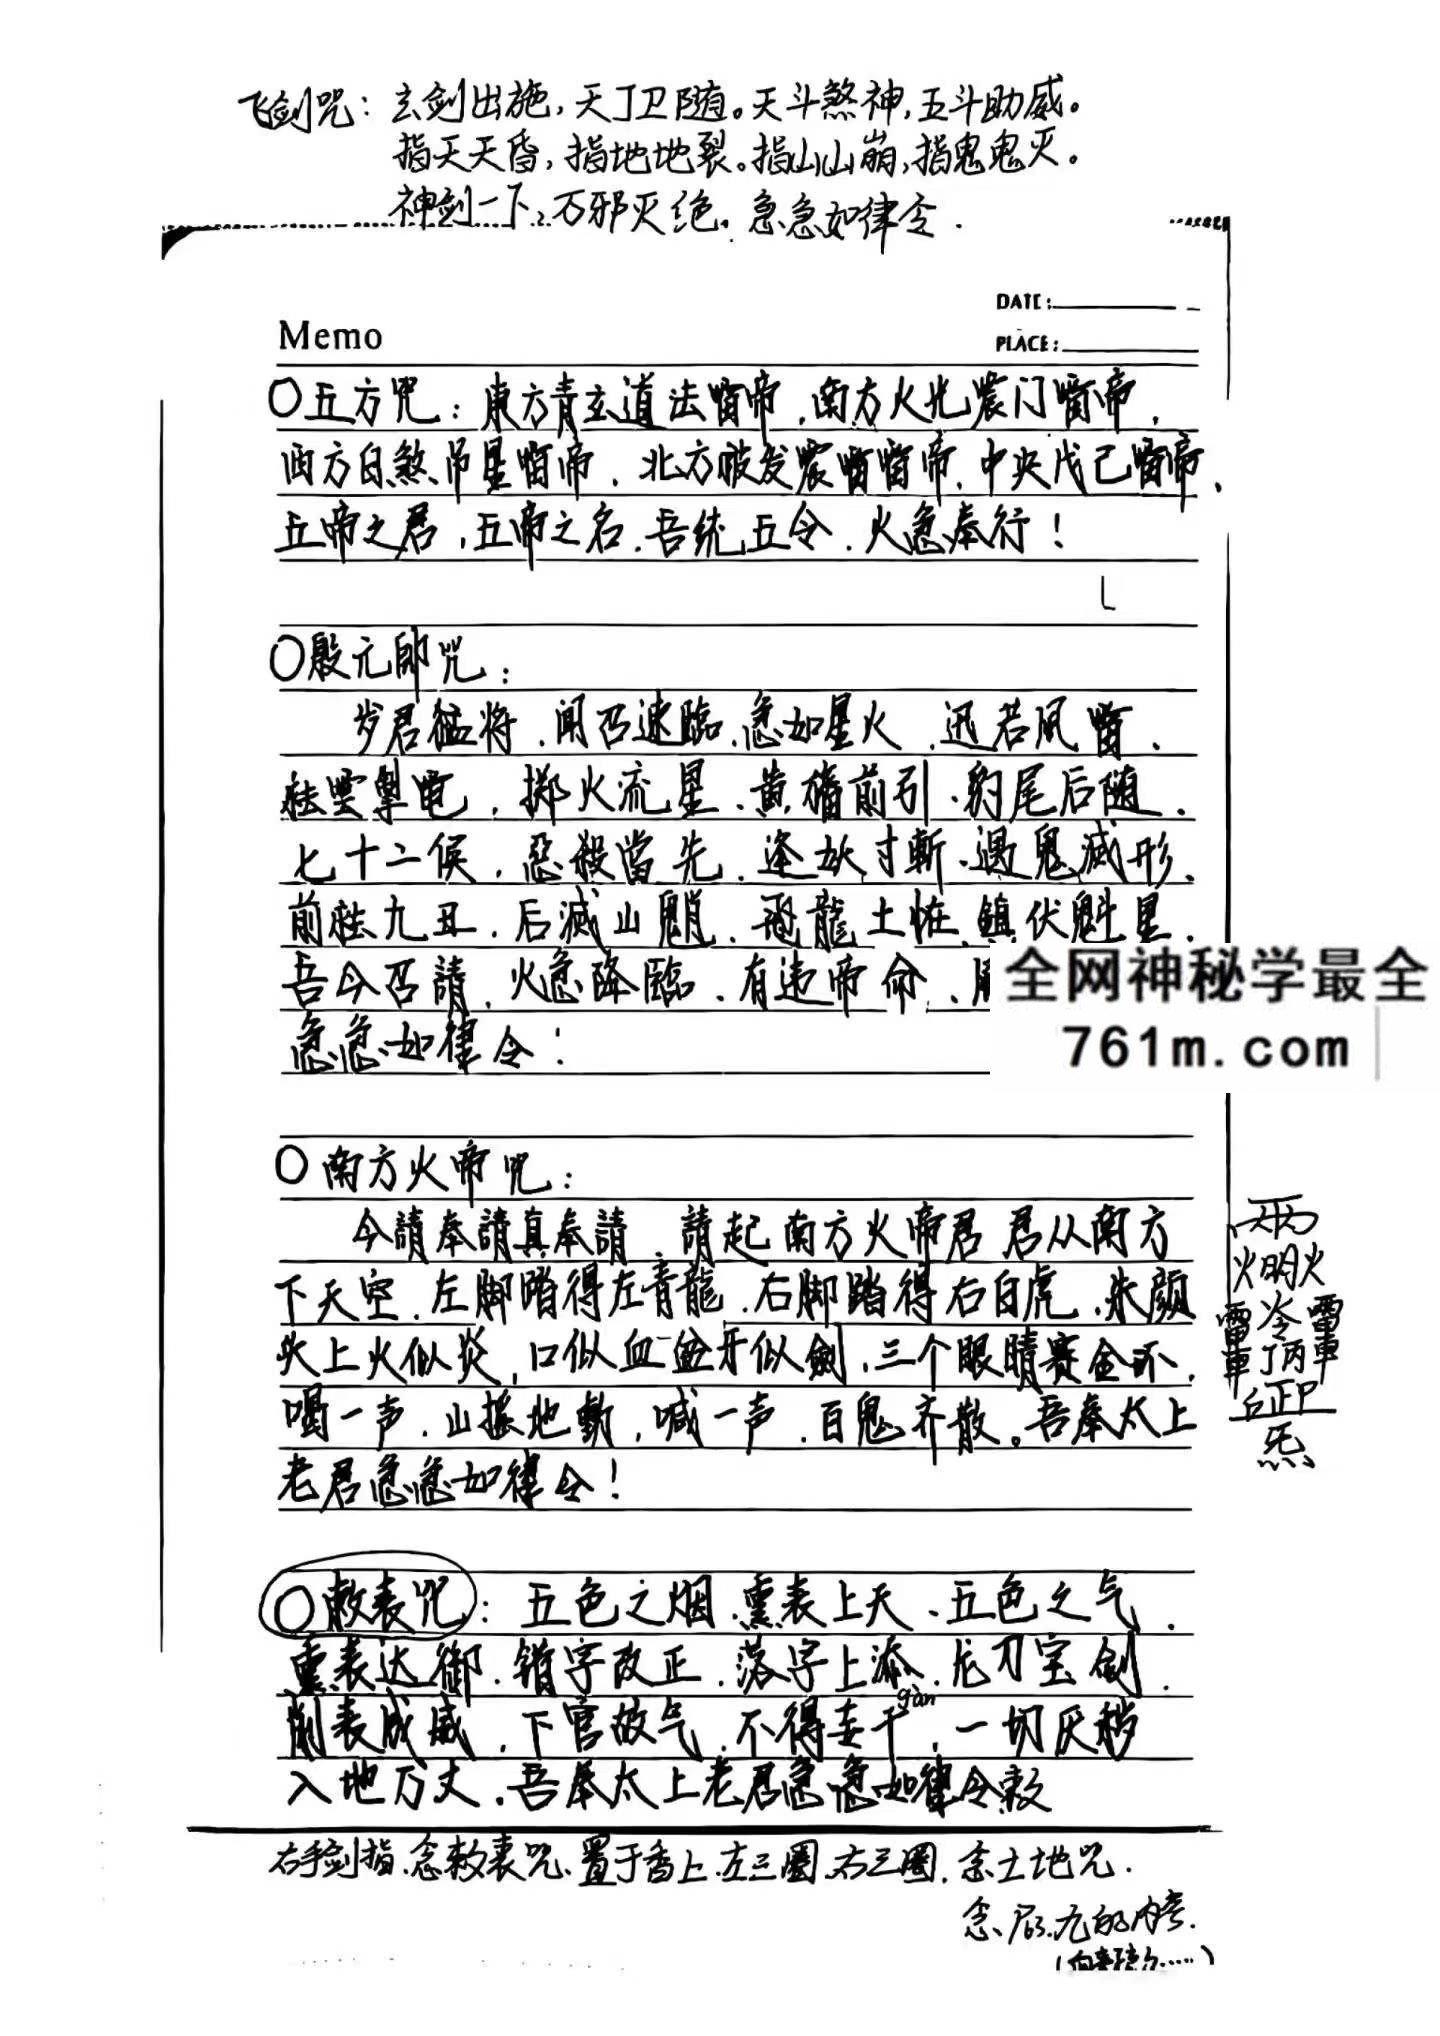 飞剑咒：玄剑出施，天丁卫随。天斗煞神，五斗助威。
指天天昏，指地地裂。指山山崩，指鬼鬼灭。
神剑一下，万邪灭绝。急急如律令．
DATE:
Memo
PLACE:
〇五方咒：東方青玄道法雷帝，南方火光震门雷帝，
西方白煞吊星雷帝，北方披发震雷雷帝，中央戊己雷帝，
五帝之君，五帝之名，吾统五令，火急奉行！
〇殷元帥咒：
岁君猛将，闻召速臨，急如星火，迅若风雷，
祛雲掣电，掷火流星，黄旛前引，豹尾后随，
七十二候，惡殺當先，逢妖寸斬，遇鬼滅形，
前祛九丑，后滅山魈，飛龍土怪，鎮伏魁星，
吾今召請，火急降臨，有违帝命，
急急如律令！
全网神秘学最全
761m.com
〇南方火帝咒：
今請奉請真奉請，請起南方火帝君 君从南方
下天空，左脚踏得左青龍，右脚踏得右白虎，朱颜
头上火似炎，口似血盆牙似劍，三个眼睛赛金环，
喝一声，山摇地動，喊一声，百鬼齐散。吾奉太上
老君急急如律令！
〇敕表咒：五色之烟，熏表上天，五色之气，
熏表达御，错字改正，落字上添，龙刀宝剑，
gàn
削表成威，下官故气，不得妄干，一切厌秽
入地万丈，吾奉太上老君急急如律令敕
右手剑指，念敕表咒，置于香上，左三圈，右三圈，念土地咒．